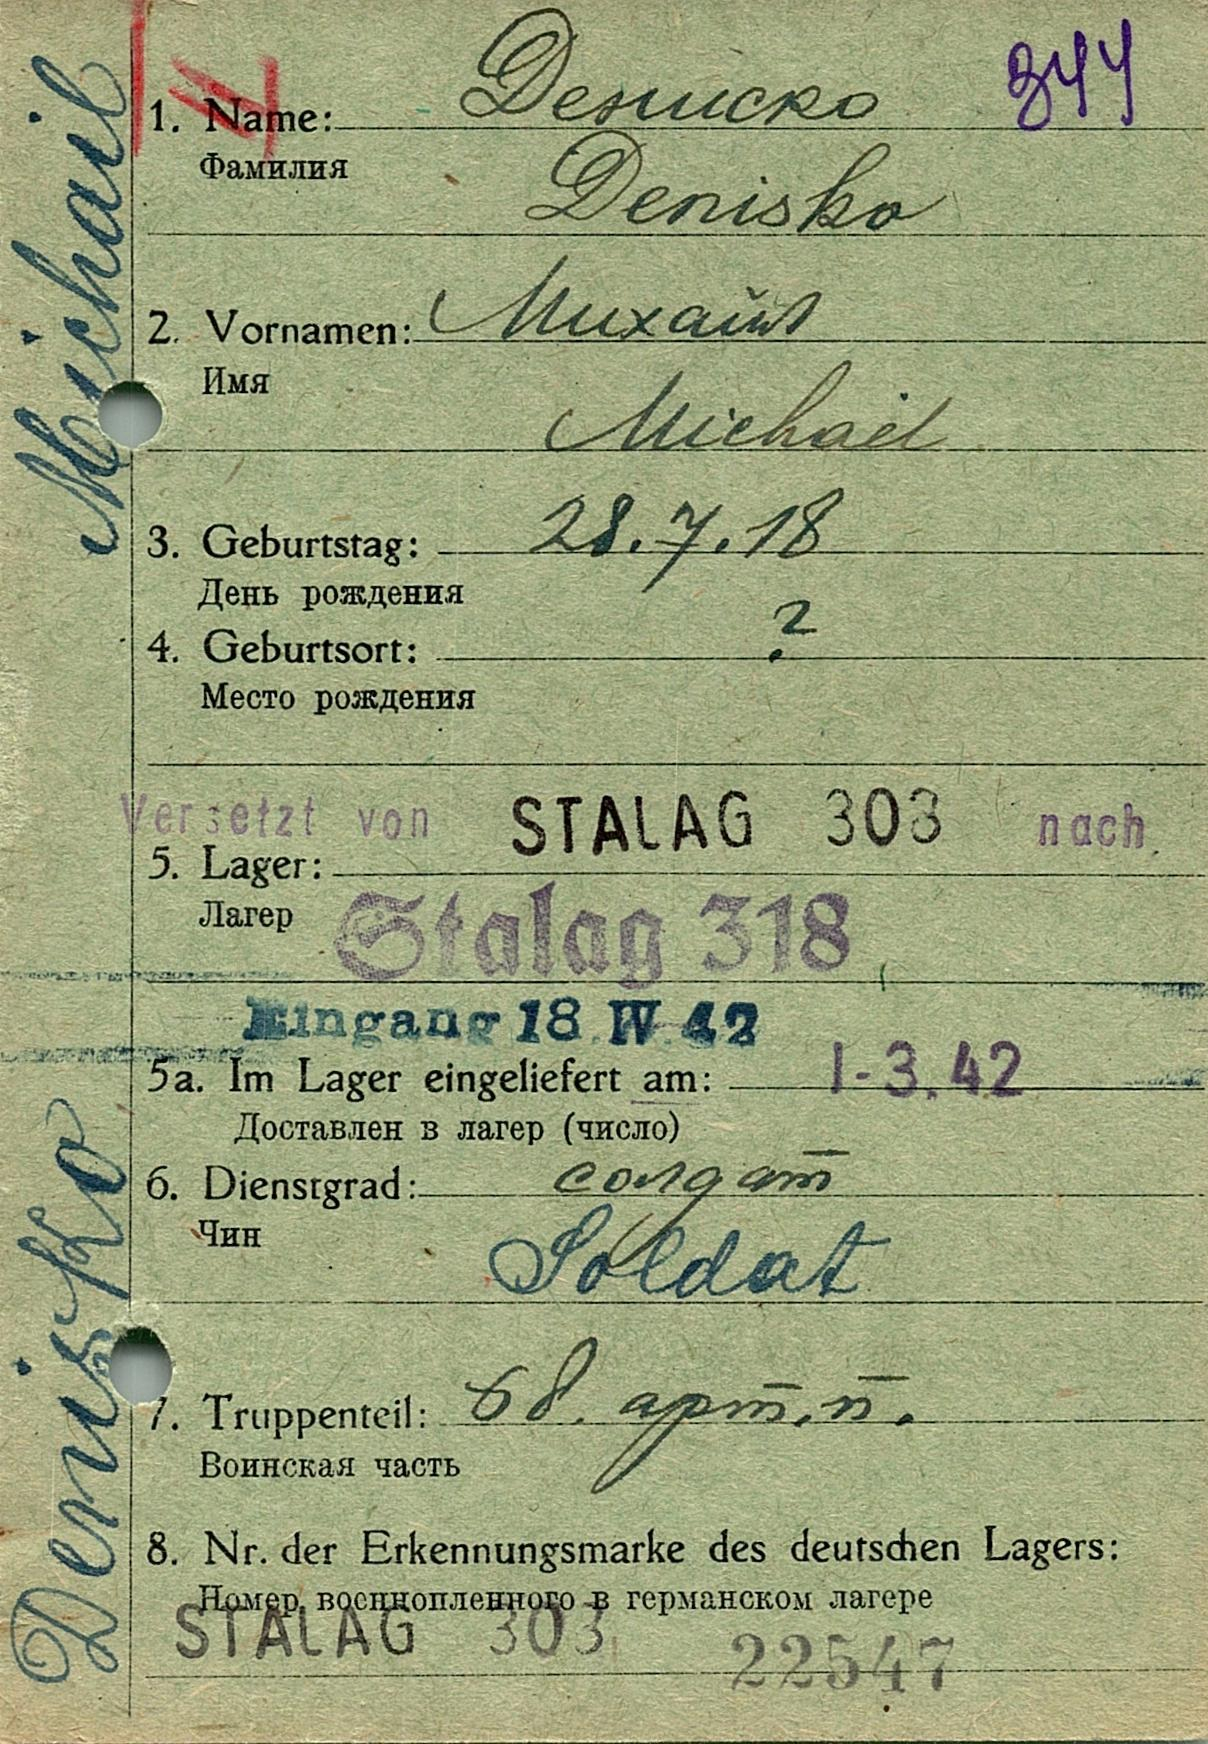 344
1. Name: Дениско
Фамилия
Denisko
2. Vornamen: Михаил
Имя
Michael
3. Geburtstag: 28.7.18
День рождения
4. Geburtsort: ?
Место рождения
Versetzt von STALAG 303 nach
5. Lager:
Лагер
Stalag 318
Eingang 18. IV. 42
5a. Im Lager eingeliefert am: 1-3.42
Доставлен в лагер (число)
6. Dienstgrad: солдат
Чин
Soldat
7. Truppenteil: 68. арт. п.
Воинская часть
8. Nr. der Erkennungsmarke des deutschen Lagers:
Номер военнопленного в германском лагере
STALAG 303 22547
Denisko Michail